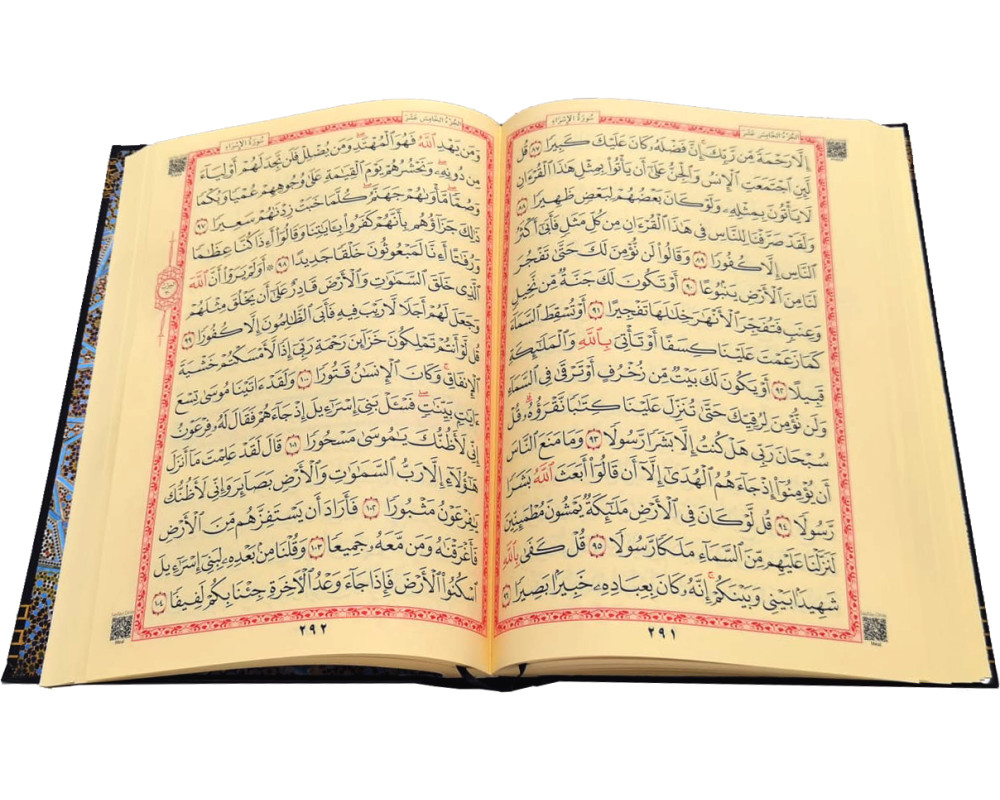 الجُزْءُ الخَامِسَ عَشَرَ سُورَةُ الإِسْرَاءِ
إِلَّا رَحْمَةً مِّن رَّبِّكَ إِنَّ فَضْلَهُۥ كَانَ عَلَيْكَ كَبِيرًا ٨٧ قُل
لَّئِنِ ٱجْتَمَعَتِ ٱلْإِنسُ وَٱلْجِنُّ عَلَىٰٓ أَن يَأْتُوا۟ بِمِثْلِ هَٰذَا ٱلْقُرْءَانِ
لَا يَأْتُونَ بِمِثْلِهِۦ وَلَوْ كَانَ بَعْضُهُمْ لِبَعْضٍ ظَهِيرًا ٨٨
وَلَقَدْ صَرَّفْنَا لِلنَّاسِ فِى هَٰذَا ٱلْقُرْءَانِ مِن كُلِّ مَثَلٍ فَأَبَىٰٓ أَكْثَرُ
ٱلنَّاسِ إِلَّا كُفُورًا ٨٩ وَقَالُوا۟ لَن نُّؤْمِنَ لَكَ حَتَّىٰ تَفْجُرَ
لَنَا مِنَ ٱلْأَرْضِ يَنۢبُوعًا ٩٠ أَوْ تَكُونَ لَكَ جَنَّةٌ مِّن نَّخِيلٍ
وَعِنَبٍ فَتُفَجِّرَ ٱلْأَنْهَٰرَ خِلَٰلَهَا تَفْجِيرًا ٩١ أَوْ تُسْقِطَ ٱلسَّمَآءَ
كَمَا زَعَمْتَ عَلَيْنَا كِسَفًا أَوْ تَأْتِىَ بِٱللَّهِ وَٱلْمَلَٰٓئِكَةِ
قَبِيلًا ٩٢ أَوْ يَكُونَ لَكَ بَيْتٌ مِّن زُخْرُفٍ أَوْ تَرْقَىٰ فِى ٱلسَّمَآءِ
وَلَن نُّؤْمِنَ لِرُقِيِّكَ حَتَّىٰ تُنَزِّلَ عَلَيْنَا كِتَٰبًا نَّقْرَؤُهُۥ قُلْ
سُبْحَانَ رَبِّى هَلْ كُنتُ إِلَّا بَشَرًا رَّسُولًا ٩٣ وَمَا مَنَعَ ٱلنَّاسَ
أَن يُؤْمِنُوٓا۟ إِذْ جَآءَهُمُ ٱلْهُدَىٰٓ إِلَّآ أَن قَالُوٓا۟ أَبَعَثَ ٱللَّهُ بَشَرًا
رَّسُولًا ٩٤ قُل لَّوْ كَانَ فِى ٱلْأَرْضِ مَلَٰٓئِكَةٌ يَمْشُونَ مُطْمَئِنِّينَ
لَنَزَّلْنَا عَلَيْهِم مِّنَ ٱلسَّمَآءِ مَلَكًا رَّسُولًا ٩٥ قُلْ كَفَىٰ بِٱللَّهِ
شَهِيدًۢا بَيْنِى وَبَيْنَكُمْ إِنَّهُۥ كَانَ بِعِبَادِهِۦ خَبِيرًۢا بَصِيرًا ٩٦
٢٩١
الجُزْءُ الخَامِسَ عَشَرَ سُورَةُ الإِسْرَاءِ
وَمَن يَهْدِ ٱللَّهُ فَهُوَ ٱلْمُهْتَدِ وَمَن يُضْلِلْ فَلَن تَجِدَ لَهُمْ أَوْلِيَآءَ
مِن دُونِهِۦ وَنَحْشُرُهُمْ يَوْمَ ٱلْقِيَٰمَةِ عَلَىٰ وُجُوهِهِمْ عُمْيًا وَبُكْمًا
وَصُمًّا مَّأْوَىٰهُمْ جَهَنَّمُ كُلَّمَا خَبَتْ زِدْنَٰهُمْ سَعِيرًا ٩٧
ذَٰلِكَ جَزَآؤُهُم بِأَنَّهُمْ كَفَرُوا۟ بِـَٔايَٰتِنَا وَقَالُوٓا۟ أَءِذَا كُنَّا عِظَٰمًا
وَرُفَٰتًا أَءِنَّا لَمَبْعُوثُونَ خَلْقًا جَدِيدًا ٩٨ * أَوَلَمْ يَرَوْا۟ أَنَّ ٱللَّهَ
ٱلَّذِى خَلَقَ ٱلسَّمَٰوَٰتِ وَٱلْأَرْضَ قَادِرٌ عَلَىٰٓ أَن يَخْلُقَ مِثْلَهُمْ
وَجَعَلَ لَهُمْ أَجَلًا لَّا رَيْبَ فِيهِ فَأَبَى ٱلظَّٰلِمُونَ إِلَّا كُفُورًا ٩٩
قُل لَّوْ أَنتُمْ تَمْلِكُونَ خَزَآئِنَ رَحْمَةِ رَبِّىٓ إِذًا لَّأَمْسَكْتُمْ خَشْيَةَ
ٱلْإِنفَاقِ وَكَانَ ٱلْإِنسَٰنُ قَتُورًا ١٠٠ وَلَقَدْ ءَاتَيْنَا مُوسَىٰ تِسْعَ
ءَايَٰتٍۭ بَيِّنَٰتٍ فَسْـَٔلْ بَنِىٓ إِسْرَٰٓءِيلَ إِذْ جَآءَهُمْ فَقَالَ لَهُۥ فِرْعَوْنُ
إِنِّى لَأَظُنُّكَ يَٰمُوسَىٰ مَسْحُورًا ١٠١ قَالَ لَقَدْ عَلِمْتَ مَآ أَنزَلَ
هَٰٓؤُلَآءِ إِلَّا رَبُّ ٱلسَّمَٰوَٰتِ وَٱلْأَرْضِ بَصَآئِرَ وَإِنِّى لَأَظُنُّكَ
يَٰفِرْعَوْنُ مَثْبُورًا ١٠٢ فَأَرَادَ أَن يَسْتَفِزَّهُم مِّنَ ٱلْأَرْضِ
فَأَغْرَقْنَٰهُ وَمَن مَّعَهُۥ جَمِيعًا ١٠٣ وَقُلْنَا مِنۢ بَعْدِهِۦ لِبَنِىٓ إِسْرَٰٓءِيلَ
ٱسْكُنُوا۟ ٱلْأَرْضَ فَإِذَا جَآءَ وَعْدُ ٱلْءَاخِرَةِ جِئْنَا بِكُمْ لَفِيفًا ١٠٤
٢٩٢